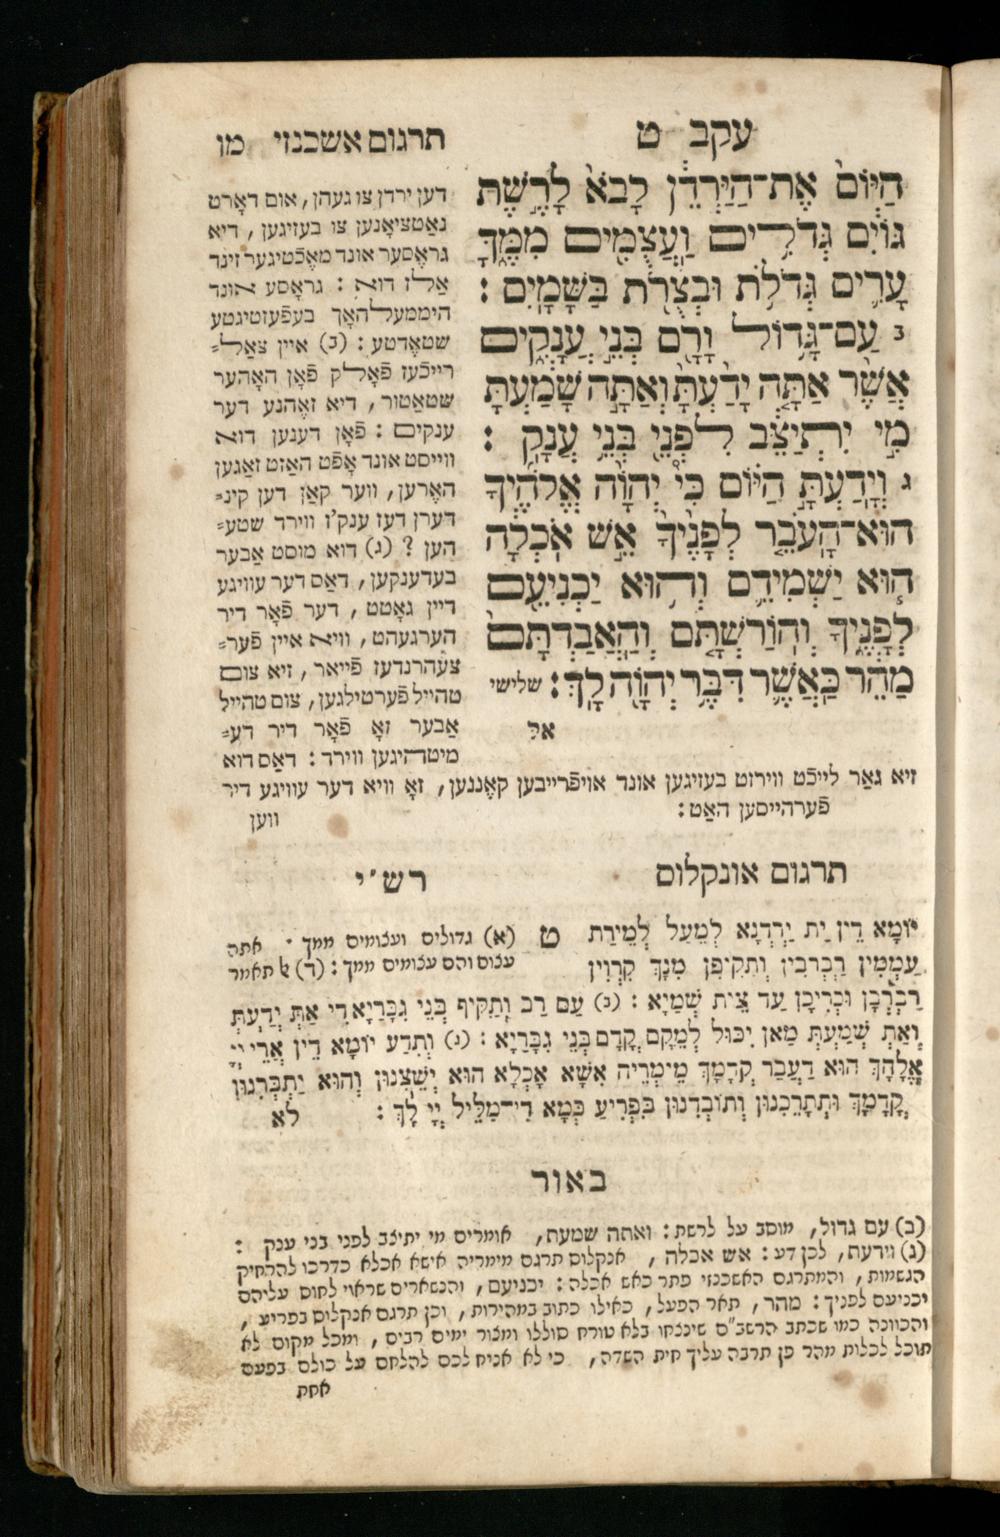 עקב ט
תרגום אשכנזי מו
הַיּוֹם אֶת־הַיַּרְדֵּן לָבֹא לָרֶשֶׁת
גּוֹיִם גְּדֹלִים וַעֲצֻמִים מִמֶּךָּ
עָרִים גְּדֹלֹת וּבְצֻרֹת בַּשָּׁמָיִם :
ב עַם־גָּדוֹל וָרָם בְּנֵי עֲנָקִים
אֲשֶׁר אַתָּה יָדַעְתָּ וְאַתָּה שָׁמַעְתָּ
מִי יִתְיַצֵּב לִפְנֵי בְּנֵי עֲנָק :
ג וְיָדַעְתָּ הַיּוֹם כִּי יְהוָֹה אֱלֹהֶיךָ
הוּא־הָעֹבֵר לְפָנֶיךָ אֵשׁ אֹכְלָה
הוּא יַשְׁמִידֵם וְהוּא יַכְנִיעֵם
לְפָנֶיךָ וְהוֹרַשְׁתָּם וְהַאֲבַדְתָּם
מַהֵר כַּאֲשֶׁר דִּבֶּר יְהוָֹה לָךְ : שלישי
אל
דען ירדן צו געהן, אום דאָרט
נאַטציאָנען צו בעזיגען, דיא
גראָסער אונד מאֶכֿטיגער זינד
אַלז דוא : גראָסע אונד
היממעלהאָך בעפֿעזטיגטע
שטאֶדטע : (ב) איין צאַל=
רייכֿעז פֿאָלק פֿאָן האָהער
שטאַטור, דיא זאֶהנע דער
ענקים : פֿאָן דענען דוא
ווייסט אונד אָפֿט האַזט זאַגען
האֶרען, ווער קאַן דען קינ=
דערן דעז ענק'ז ווירד שטע=
הען ? (ג) דוא מוסט אַבער
בעדענקען, דאַס דער עוויגע
דיין גאָטט, דער פֿאָר דיר
הערגעהט, וויא איין פֿער=
צעהרנדעז פֿייאר, זיא צום
טהייל פֿערטילגען, צום טהייל
אַבער זאָ פֿאָר דיר דע=
מיטהיגען ווירד : דאַס דוא
זיא גאַר לייכֿט ווירזט בעזיגען אונד אויפֿרייבען קאֶננען, זאָ וויא דער עוויגע דיר
פֿערהייסען האַט :
ווען
תרגום אונקלוס
יוֹמָא דֵין יַת יַרְדְּנָא לְמֵעַל לְמֵירַת
עַמְמִין רַבְרְבִין וְתַקִּיפִן מִנָּךְ קִרְוִין
רַבְרְבָן וּכְרִיכָן עַד צֵית שְׁמַיָא : (ב) עַם רַב וְתַקִּיף בְּנֵי גִבָּרַיָא דִי אַתְּ יְדַעְתְּ
וְאַתְּ שְׁמַעְתְּ מַאן יִכּוּל לְמֵקָם קֳדָם בְּנֵי גִבָּרַיָא : (ג) וְתִדַע יוֹמָא דֵין אֲרֵי יְיָ
אֱלָהָךְ הוּא דְעָבַר קֳדָמָךְ מֵימְרֵיהּ אֶשָּׁא אָכְלָא הוּא יְשֵׁצִנּוּן וְהוּא יִתְבְּרִנּוּן
קֳדָמָךְ וּתְתָרֵכִנּוּן וְתוֹבְדִנּוּן בִּפְרִיעַ כְּמָא דִי־מַלֵּיל יְיָ לָךְ :
לא
רש״י
ט (א) גדולים ועצומים ממך · אתה
עצום והם עצומים ממך : (ד) אל תאמר
באור
(ב) עם גדול, מוסב על לרשת : ואתה שמעת, אומרים מי יתיצב לפני בני ענק :
(ג) וידעת, לכן דע : אש אכלה , אנקלוס תרגם מימריה אישא אכלא כדרכו להרחיק
הגשמות, והמתרגם האשכנזי פתר כאש אכלה : יכניעם, והנשארים שראוי לחום עליהם
יכניעם לפניך : מהר, תאר הפעל, כאילו כתוב במהירות, וכן תרגם אנקלוס בפריע ,
והכוונה כמו שכתב הרשב״ם שינצחו בלא טורח סוללו ומצור ימים רבים, ומכל מקום לא
תוכל לכלות מהר פן תרבה עליך חית השדה, כי לא אניח לכם להלחם על כולם בפעם
אחת